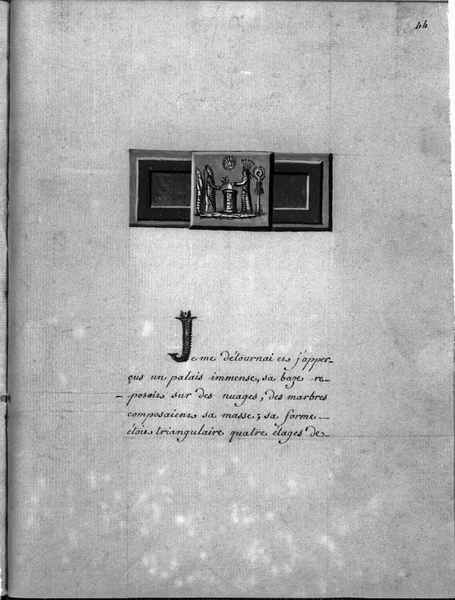 44
Je me détournai et j'apper-
çus un palais immense, sa baze re-
posoit sur des nuages, des marbres
composaient sa masse; sa forme
étoit triangulaire quatre étages de